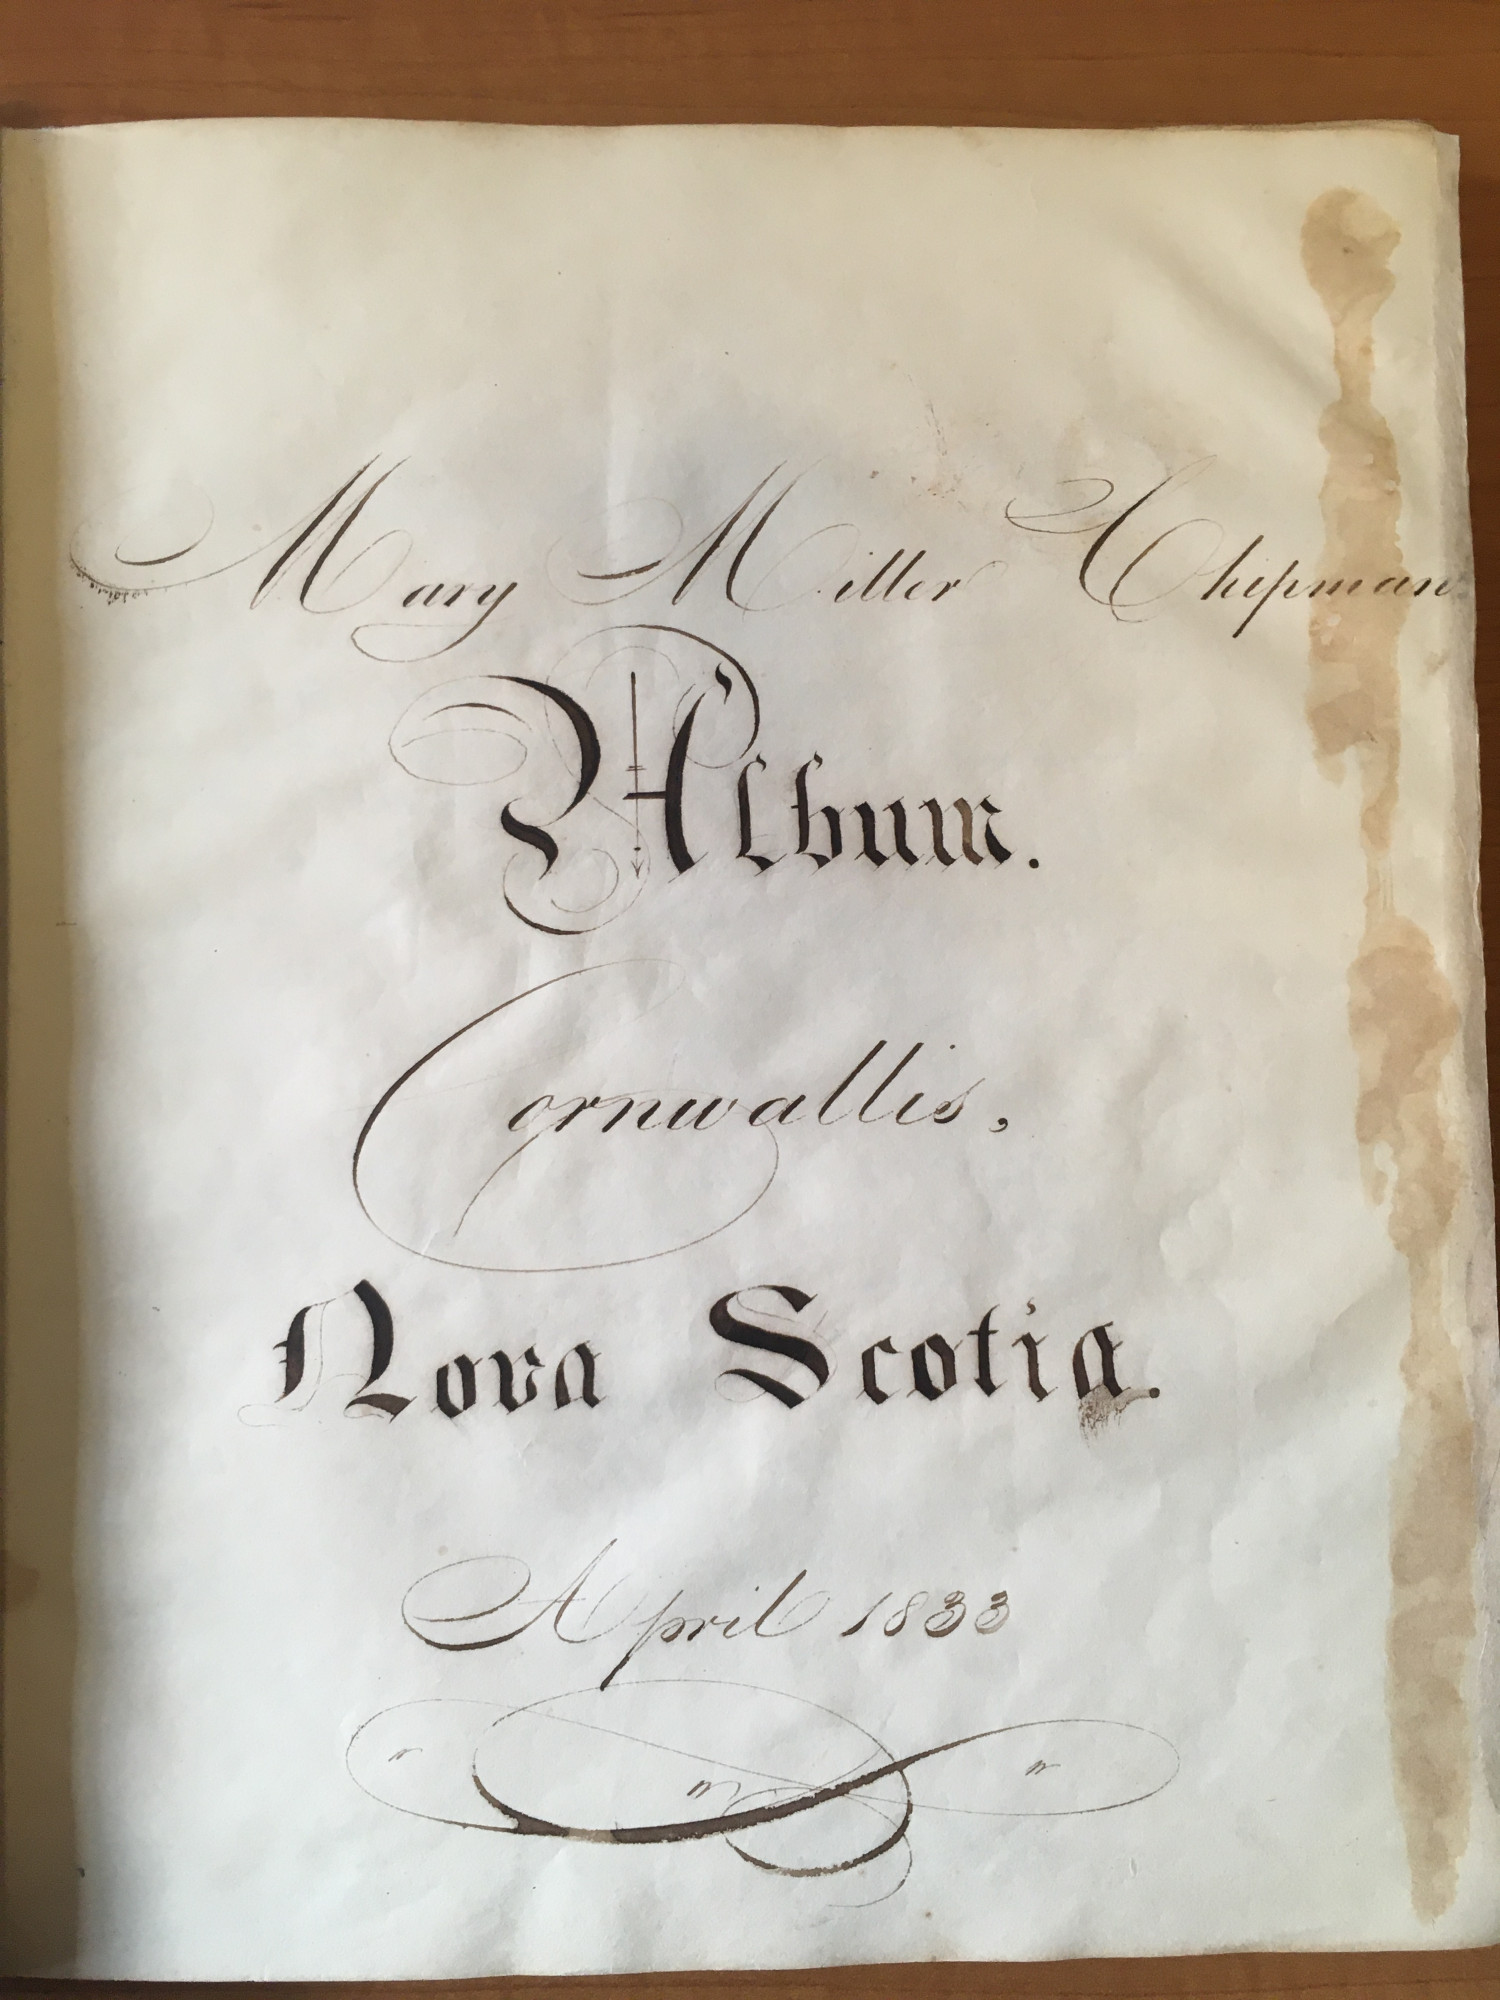 Mary Miller Chipman
Album.
Cornwallis,
Nova Scotia.
April 1833